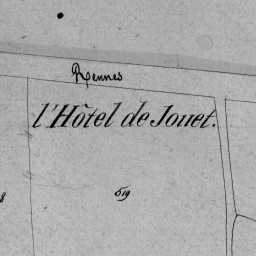 Rennes
l'Hôtel de Jouet.
519
8